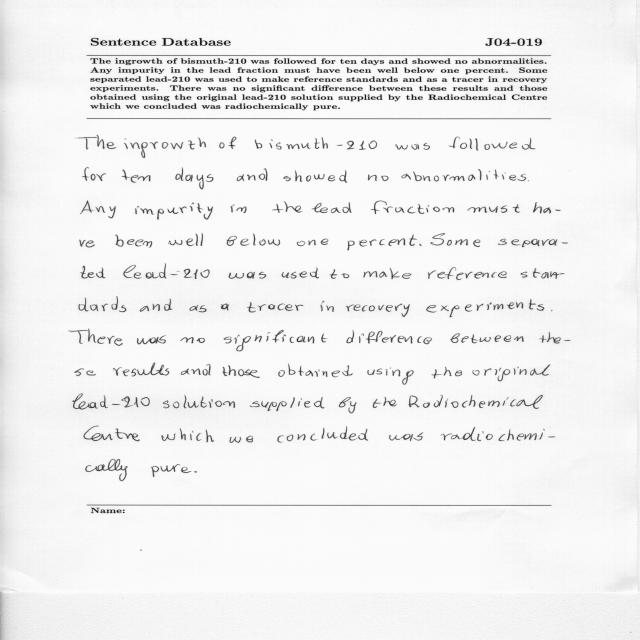 Sentence Database J04-019
The ingrowth of bismuth-210 was followed for ten days and showed no abnormalities.
Any impurity in the lead fraction must have been well below one percent. Some
separated lead-210 was used to make reference standards and as a tracer in recovery
experiments. There was no significant difference between these results and those
obtained using the original lead-210 solution supplied by the Radiochemical Centre
which we concluded was radiochemically pure.
The ingrowth of bismuth-210 was followed
for ten days and showed no abnormalities.
Any impurity in the lead fraction must ha-
ve been well below one percent. Some separa-
ted lead-210 was used to make reference stan-
dards and as a tracer in recovery experiments.
There was no significant difference between the-
se results and those obtained using the original
lead-210 solution supplied by the Radiochemical
Centre which we concluded was radiochemi-
cally pure.
Name: